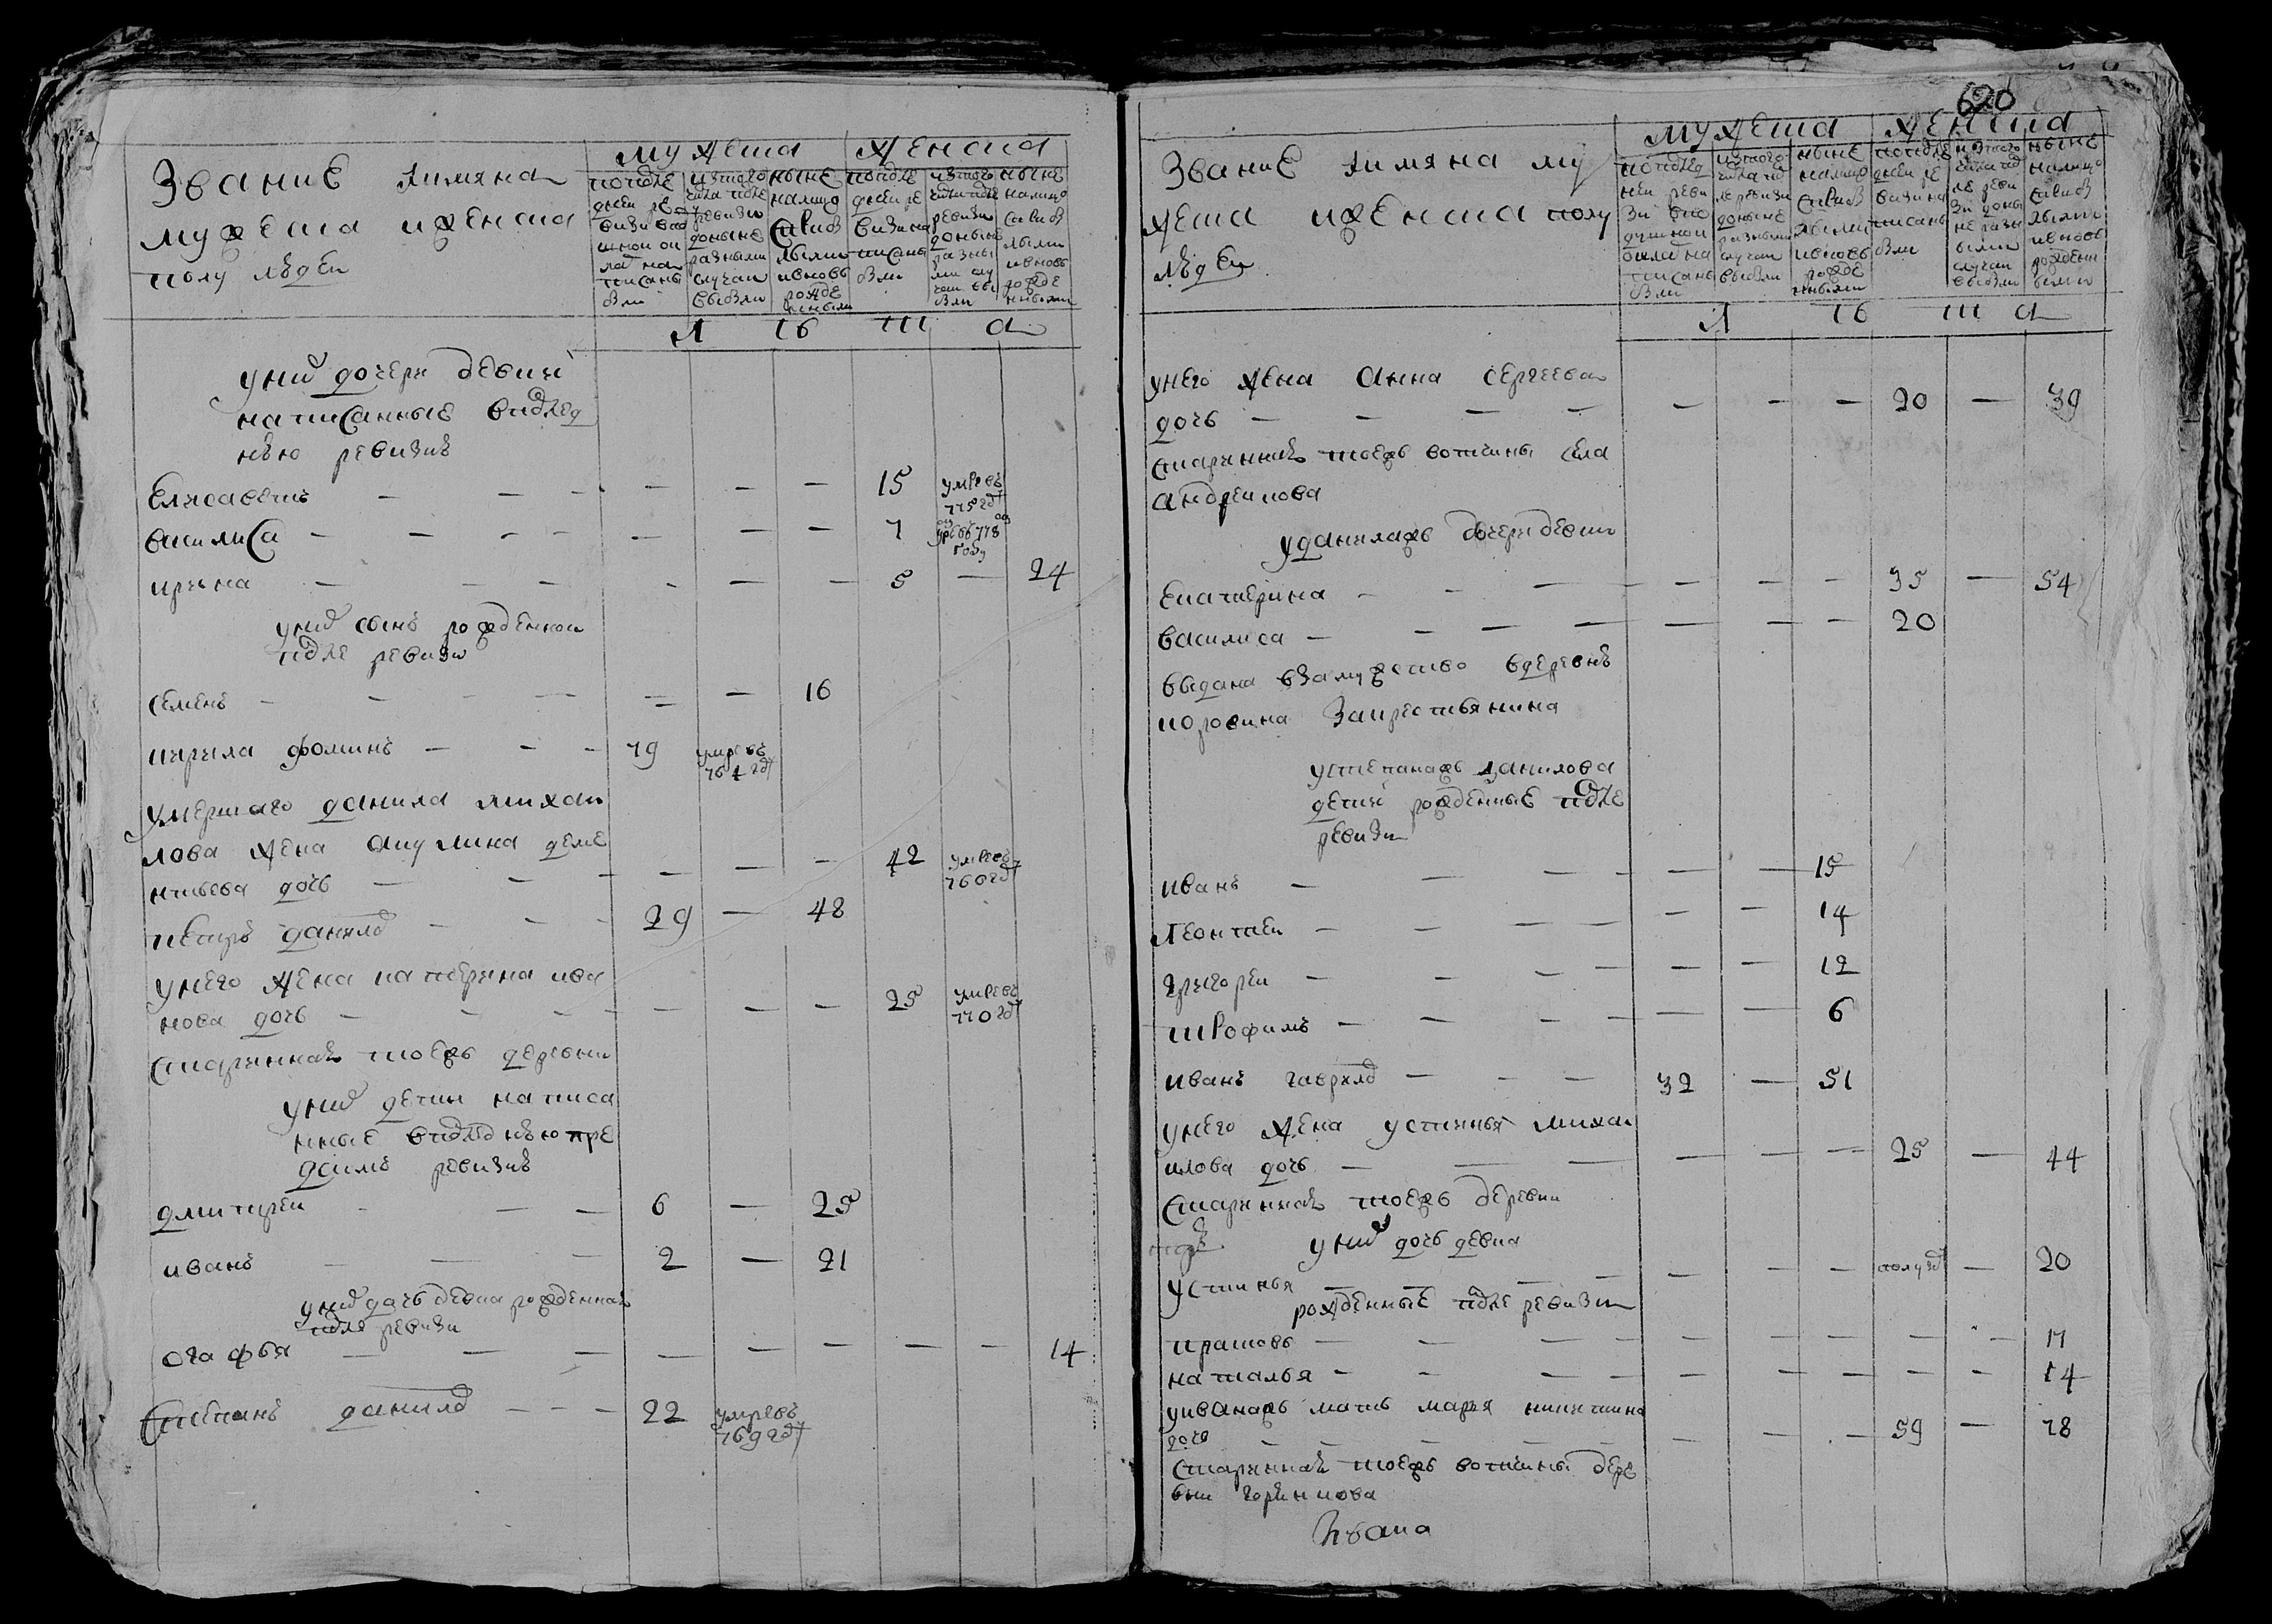 Звание и имяна
мужеска и женска
полу людеи
мужеска
женска
последнеи ревизи в подушнои оклад написаны были
ис того числа после ревизи до ныне разными случаи выбыли
ныне налицо с прибылыми и вновь рожденными
последнеи ревизи написаны были
ис того числа после ревизи до ныне разными случаи выбыли
ныне налицо с прибылыми и вновь рожденными
л ѣ т а
у них дочери девки
написанные в послед
нею ревизию
Елисаветъ — — — — — — 15 умре въ 775 году
василиса — — — — — — 7 778 году
ирина — — — — — — 5 — 24
у них сынъ рожденнои
после ревизи
семенъ — — — — — — 16
кирила фоминъ — — — 79 умре въ 764 году
умершаго данила михаи
лова жена акулина деме
нтьева дочь — — — — — — 42 умре въ 760 году
петръ данилов — — — 29 — 48
у него жена катерина ива
нова дочь — — — — — — 25 умре въ 770 году
старинная тоежъ деревни
у них дети написа
нные в последнею пре
д симъ ревизию
дмитреи — — — 6 — 25
иванъ — — — 2 — 21
у них дочь девка рожденная
после ревизи
огафья — — — — — — — — 14
степанъ данилов — — — 22 умре въ 769 году
620
Звание и имяна му
жеска и женска полу
людеи
мужеска
женска
последнеи ревизи в подушнои оклад написаны были
ис того числа после ревизи до ныне разными случаи выбыли
ныне налицо с прибылыми и вновь рожденными
последнеи ревизи написаны были
ис того числа после ревизи до ныне разными случаи выбыли
ныне налицо с прибылыми и вновь рожденными
л ѣ т а
у него жена анна сергеева
дочь — — — — — — — 20 — 39
старинная тоежъ вотчины села
андреикова
у данилажъ дочери девки
Екатерина — — — — — — 35 — 54
василиса — — — — — — — 20
выдана в замужство в деревнѣ
коровина за крестьянина
у степанажъ данилова
дети рожденные после
ревизи
иванъ — — — — — — 15
леонтеи — — — — — — 14
григореи — — — — — — 12
трофимъ — — — — — — 6
иванъ гаврилов — — — 32 — 51
у него жена устинья михаи
илова дочь — — — — — — 25 — 44
старинная тоежъ деревни
у них дочь девка
устинья — — — — — — полу году — 20
рожденные после ревизи
прасковь — — — — — — — — 17
наталья — — — — — — — — 14
у иванажъ мать марья никитина
дочь — — — — — — — 59 — 78
старинная тоежъ вотчины дере
вни горенкова